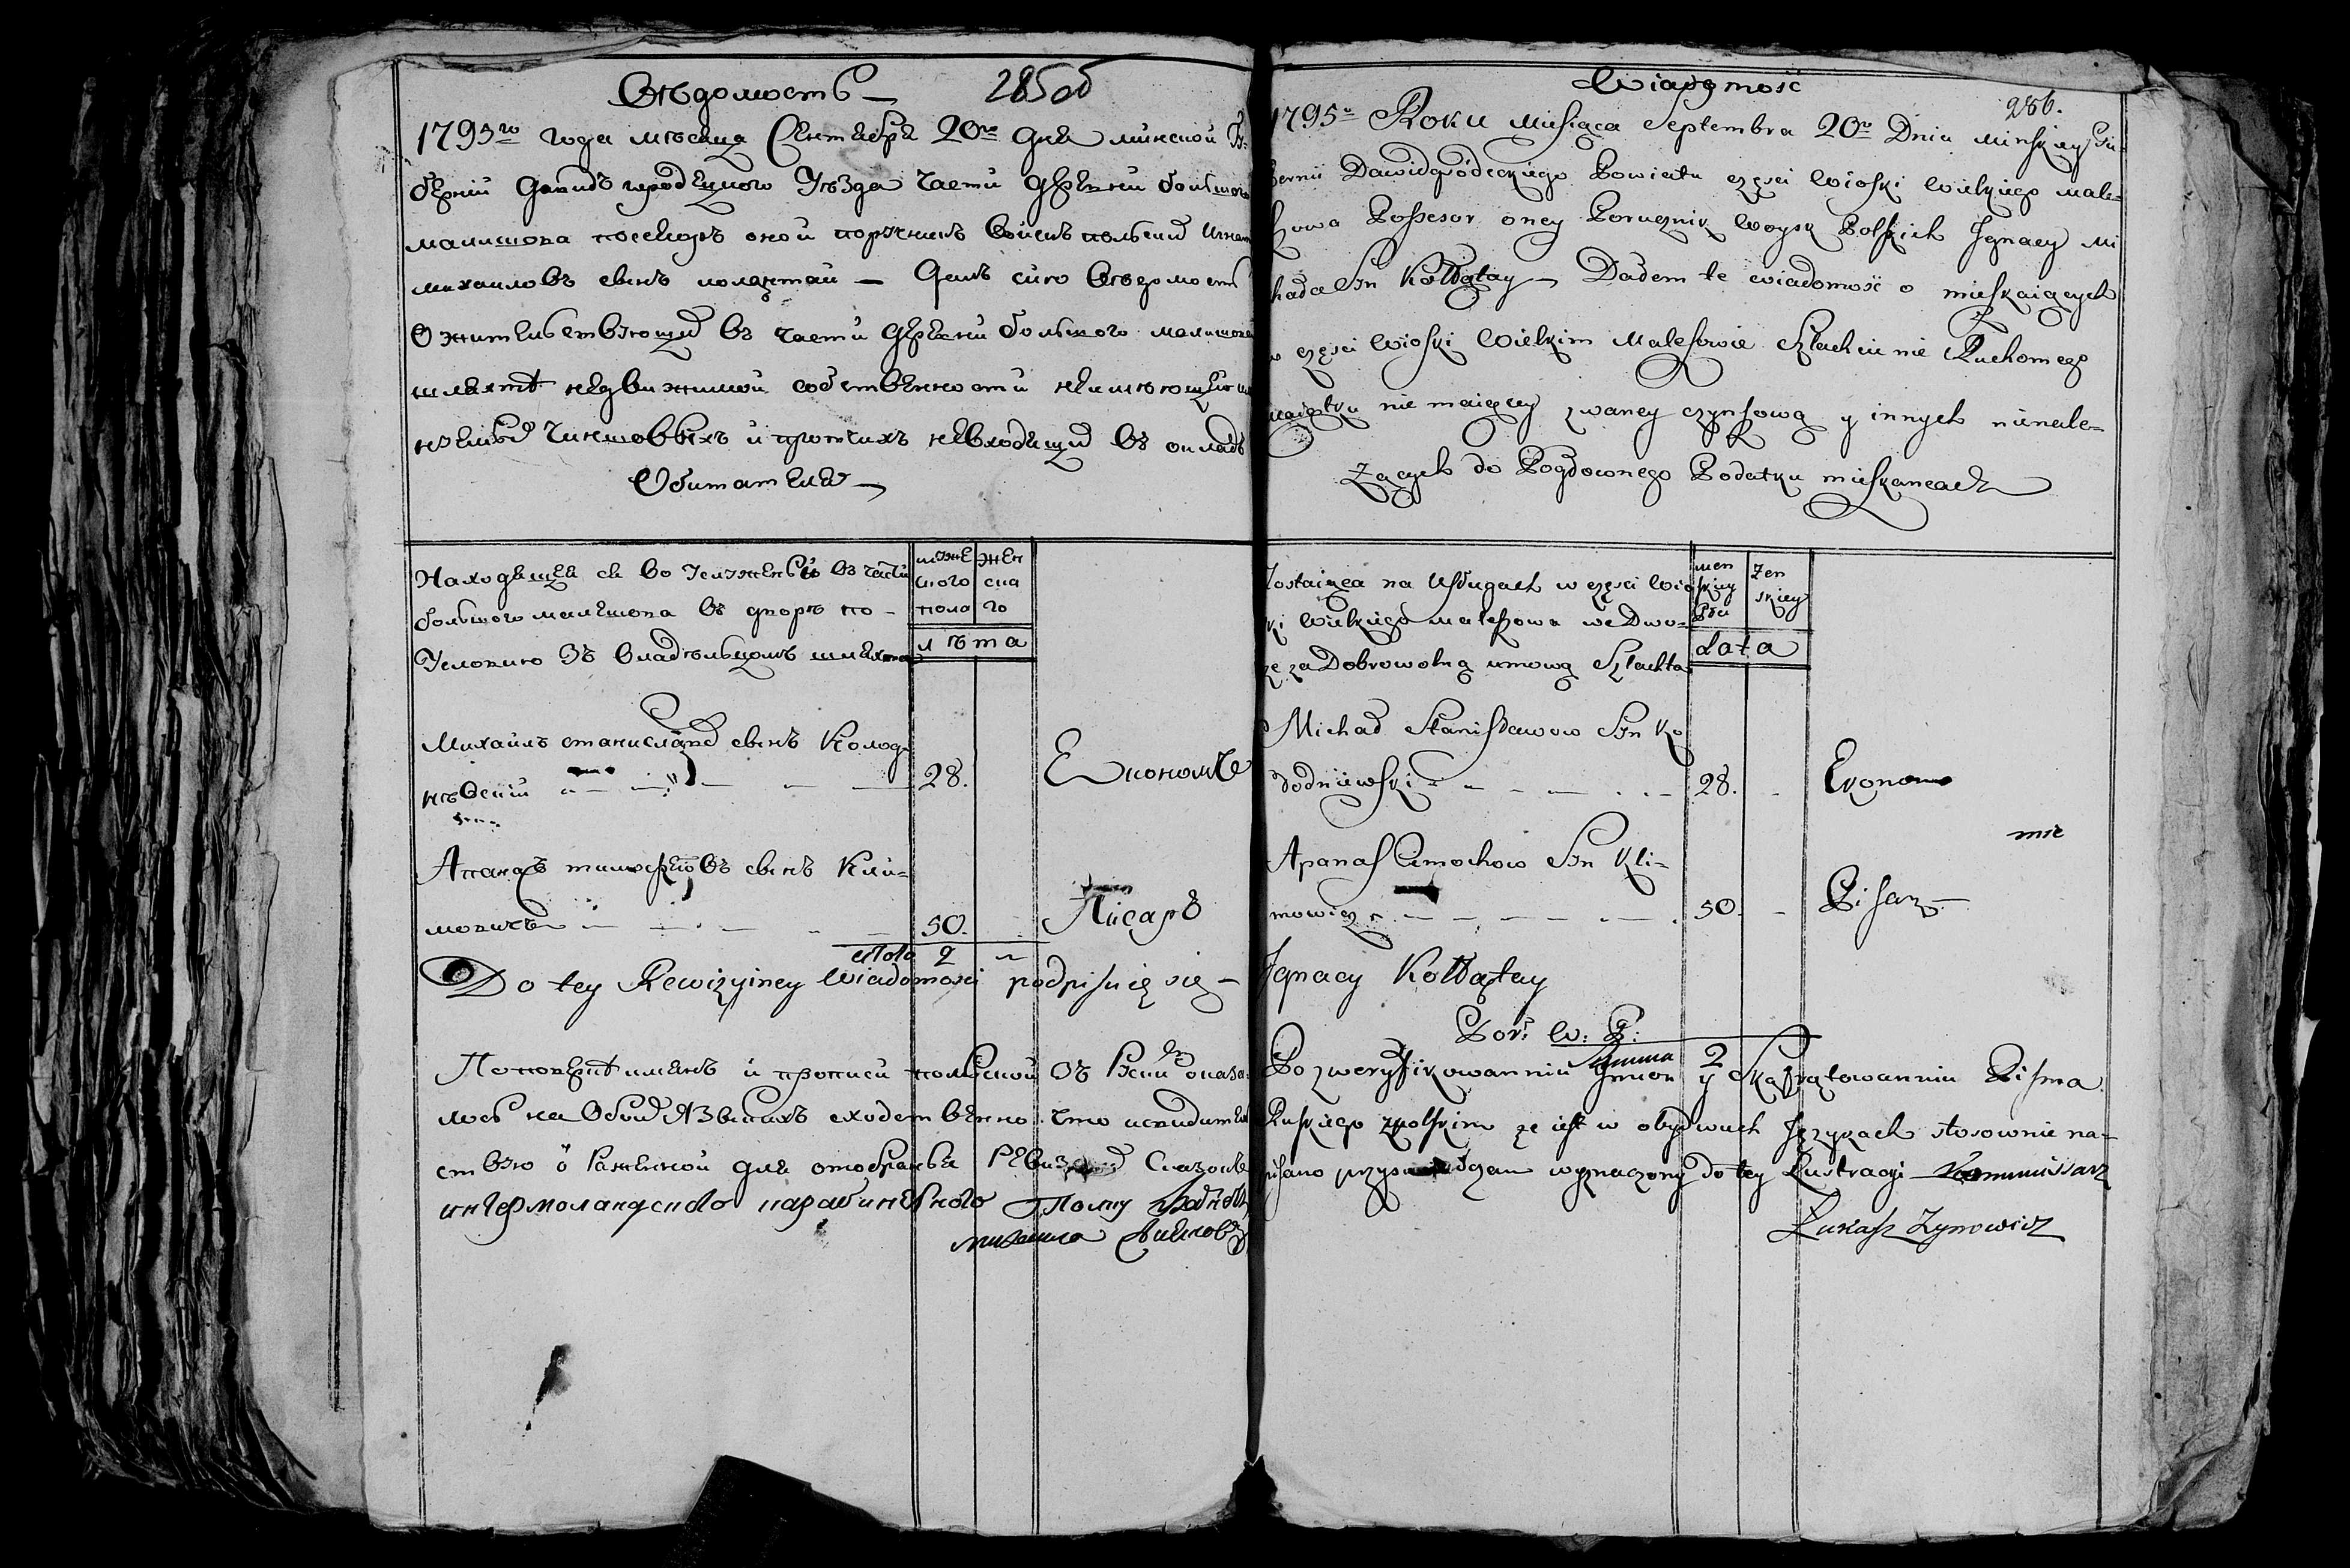 Вѣдомость
285об
1795го года мѣсяца Сентября 20го дня минской Гу-
берніи давидъ городецкого Уѣзда части деревни большого
малишова посесоръ оной поручикъ войскъ польских Игнат
михаиловъ сынъ колонтай — Далъ сию Ведомость
О жительствующих въ части деревни большого малишова
шляхтѣ недвижимой собственности неимѣющей
чиншовыхъ и протчихъ невходящих въ окладъ
Обитателя
Находящая ся во услужении въ части
большого малешова въ дворѣ по
Условию зъ владѣльцомъ шляхта
мужеского пола
женска го
лѣта
Михаилъ станиславов сынъ Колод-
нѣвский 28. Економъ
Апанасъ тимофеювъ сынъ Кли-
мовичъ 50. Писарь
итого 2
Do tey Rewizyiney Wiadomosci podpisuię się —
По поверке именъ и прописи польской зъ Руской оказа-
лось на Обоих языкахъ сходственно что исвидитель
ствую
ингермоландского карабинерного Полку
михаила
Wiadomosć
286.
1795o Roku Miesiąca Septembra 20o Dnia Minskiey Gu-
bernii Dawidgrodeckiego Powiatu częsci Wioski Wielkiego Male-
szowa Possesor oney Porucznik Woysk Polskich Ignacy Mi
hała Syn Kołłątay — Dałem te wiadomosć o mieszkaiących
w częsci Wioski Wielkim Maleszowie Szlachcie nie Ruchomego
maiątku nie maiącey zwaney czynszową y innych nienale-
żących do Pogłownego Podatku mieszkancach
Zostaiąca na Usługach w częsci Wio
ski Wielkiego Maleszowa we Dwo-
rze za Dobrowolną umową Szlachta
męn skiey Płci
żen skiey
Lata
Michał Stanisławow Syn Ko
łodniewski 28. Ekonom
Apanas Cimochow Syn Kli-
mowicz 50. Pisarz
Ignacy Kołłątay
Por: W: P:
Summa 2
Po zweryfikowanniu Imion y Skąfrątowanniu Pisma
Ruskiego z polskim że iest w obydwuch Językach stosownie na-
pisano przyswiadczam wyznaczony do tey Lustracyi Kommissarz
Łukasz Zynowicz